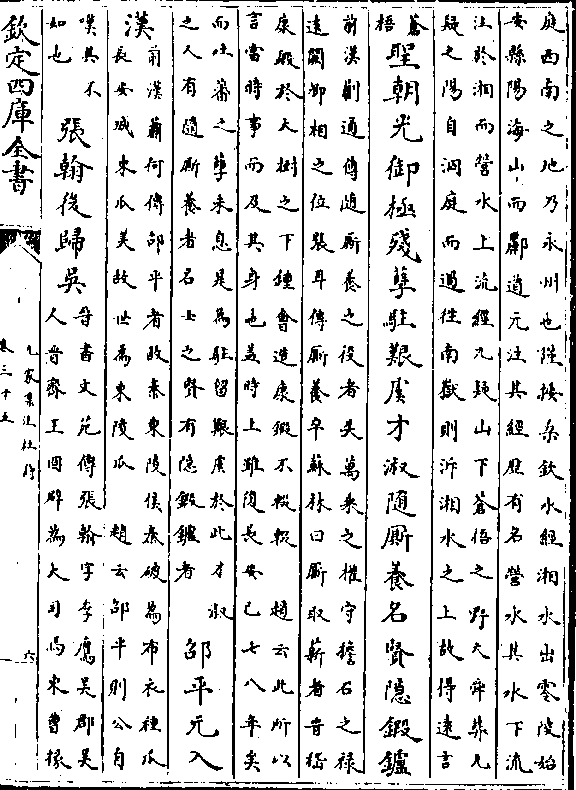 庭西南之地乃永州也陸接桑欽水經湘水出零陵始
安縣陽海山而酈道元注其經歴有名營水其水下流
注於湘而營水上流經九疑山下蒼梧之野大舜葬九
疑之陽自洞庭而過往南嶽則泝湘水之上故得遠言
蒼梧
聖朝光御極殘孽駐艱虞才淑隨厮養名賢隱鍛鑪
前漢蒯通傳隨厮養之役者失萬乗之權守擔石之禄
遠闕卿相之位張耳傳厮養卒蘇林曰厮取薪者昔嵇
康鍛於大樹之下鍾會造康鍛不輟輟　趙云此所以
言當時事而及其身也盖時上雖復長安已七八年矣
而吐蕃之孽未息是為駐留艱虞於此才淑
之人有隨厮養者名士之賢有隱鍛鑪者
邵平元入
漢
前漢蕭何傳邵平者故秦東陵侯秦破為布衣種瓜
長安城東瓜美故世為東陵瓜　趙云邵平則公自
嘆其不
如也
張翰後歸吳
晉書文苑傳張翰字季鷹吳郡吳
人晉齊王冏辟為大司馬東曹掾
欽定四庫全書
九家集注杜詩
卷三十五
六